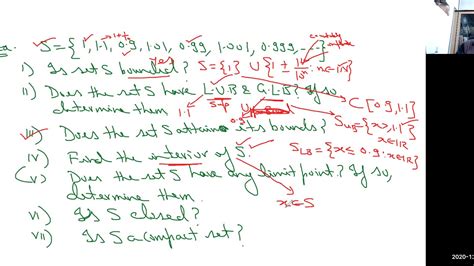 S = {1, 1.1, 0.9, 1.01, 0.99, 1.001, 0.999, ---}
i) Is set S bounded? Yes S = {1} ∪ {1 ± 1/10ⁿ : n ∈ ℕ}
ii) Does the set S have L.U.B & G.L.B? If so, ⊂ [0.9, 1.1]
determine them 1.1 Sup 0.9
iii) Does the set S attain its bounds? S_UB = {x ≥ 1.1 : x ∈ ℝ}
iv) Find the interior of S. S_LB = {x ≤ 0.9 : x ∈ ℝ}
v) Does the set S have any limit point? If so,
determine them. x ∈ S
vi) Is S closed?
vii) Is S a compact set?